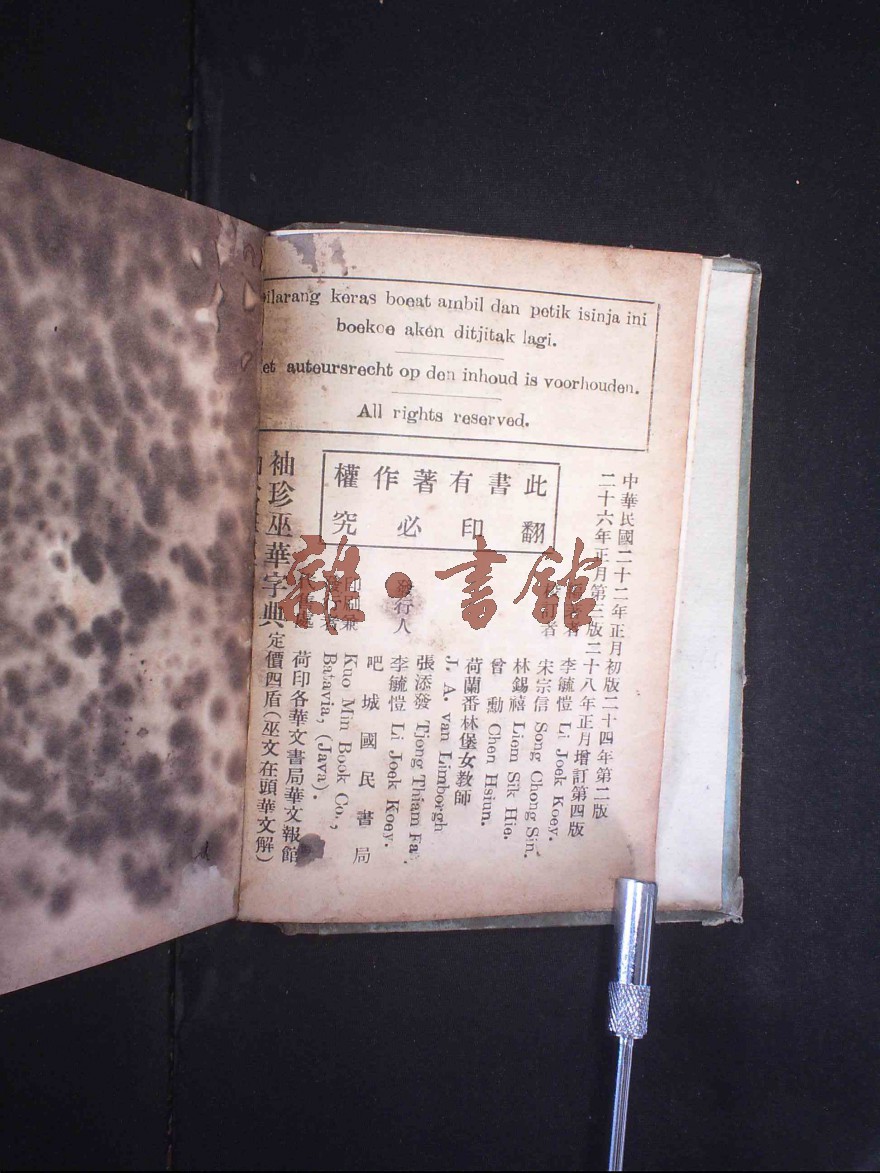 ilarang keras boeat ambil dan petik isinja ini
boekoe akén ditjitak lagi.
et auteursrecht op den inhoud is voorhouden.
All rights reserved.
此書有著作權
翻印必究
中華民國二十二年正月初版二十四年第二版
二十六年正月第三版二十八年正月增訂第四版
李毓愷 Li Joek Koey.
宋宗信 Song Chong Sin.
林錫禧 Liem Sik Hie.
曾勳 Chen Hsiun.
荷蘭番林堡女教師
J. A. van Limborgh
張添發 Tjong Thiam Fa.
發行人 李毓愷 Li Joek Koey.
吧城國民書局
Kuo Min Book Co.,
Batavia, (Java).
荷印各華文書局華文報館
袖珍巫華字典 定價四盾(巫文在頭華文解)
雜·書館